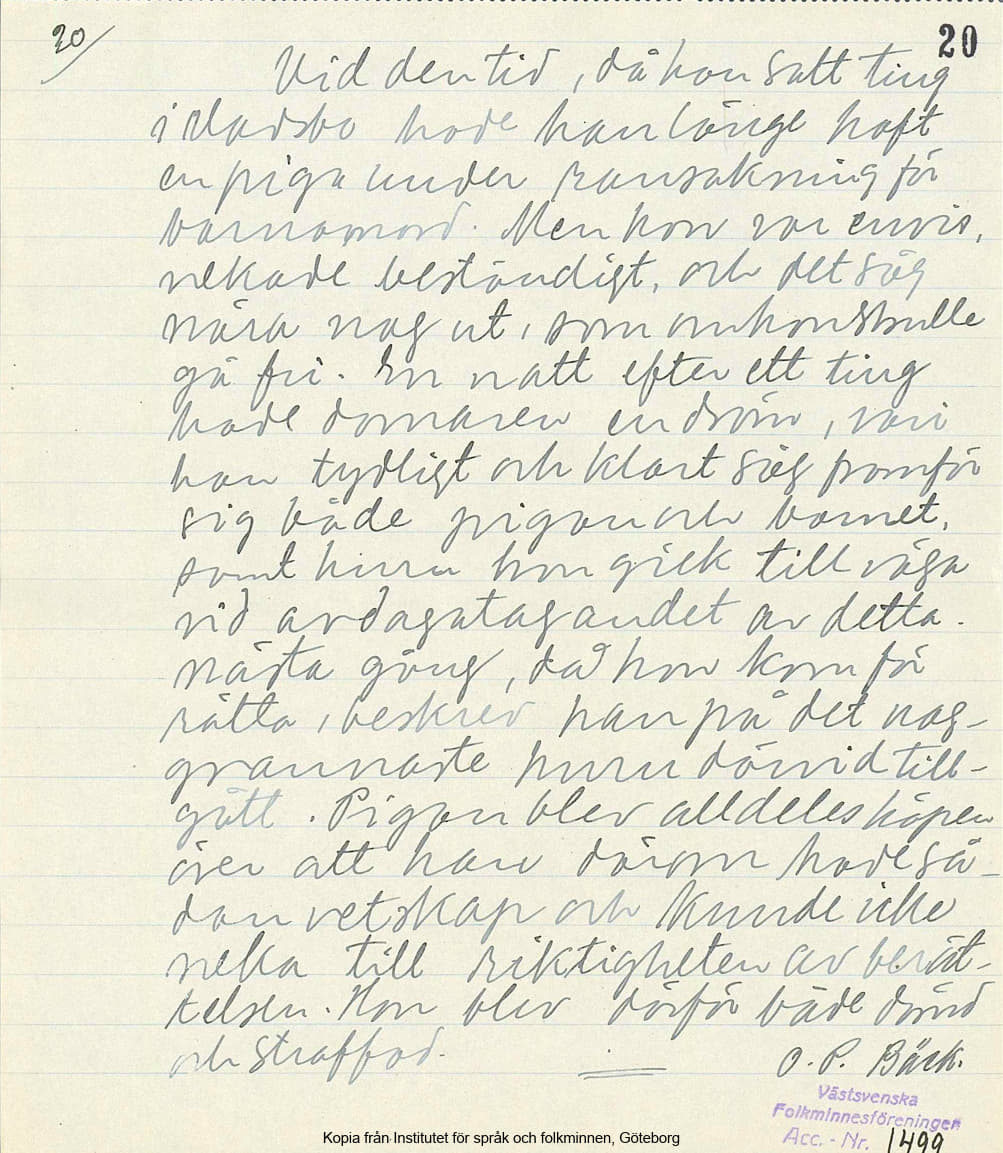 20/
20
Vid den tid, då han satt ting
i Vadsbo hade han länge haft
en piga under ransakning för
barnamord. Men hon var envis,
nekade beständigt, och det såg
nära nog ut, som om hon skulle
gå fri. En natt efter ett ting
hade domaren en dröm, vari
han tydligt och klart såg framför
sig både pigan och barnet,
samt huru hon gick till väga
vid avdagatagandet av detta.
Nästa gång, då hon kom för
rätta, beskrev han på det nog-
grannaste huru därvid till-
gått. Pigan blev alldeles häpen
över att han därom hade så-
dan vetskap och kunde icke
neka till riktigheten av berät-
telsen. Hon blev därför både dömd
och straffad.
O. P. Bäck.
Västsvenska
Folkminnesföreningen
Acc. - Nr. 1499
Kopia från Institutet för språk och folkminnen, Göteborg